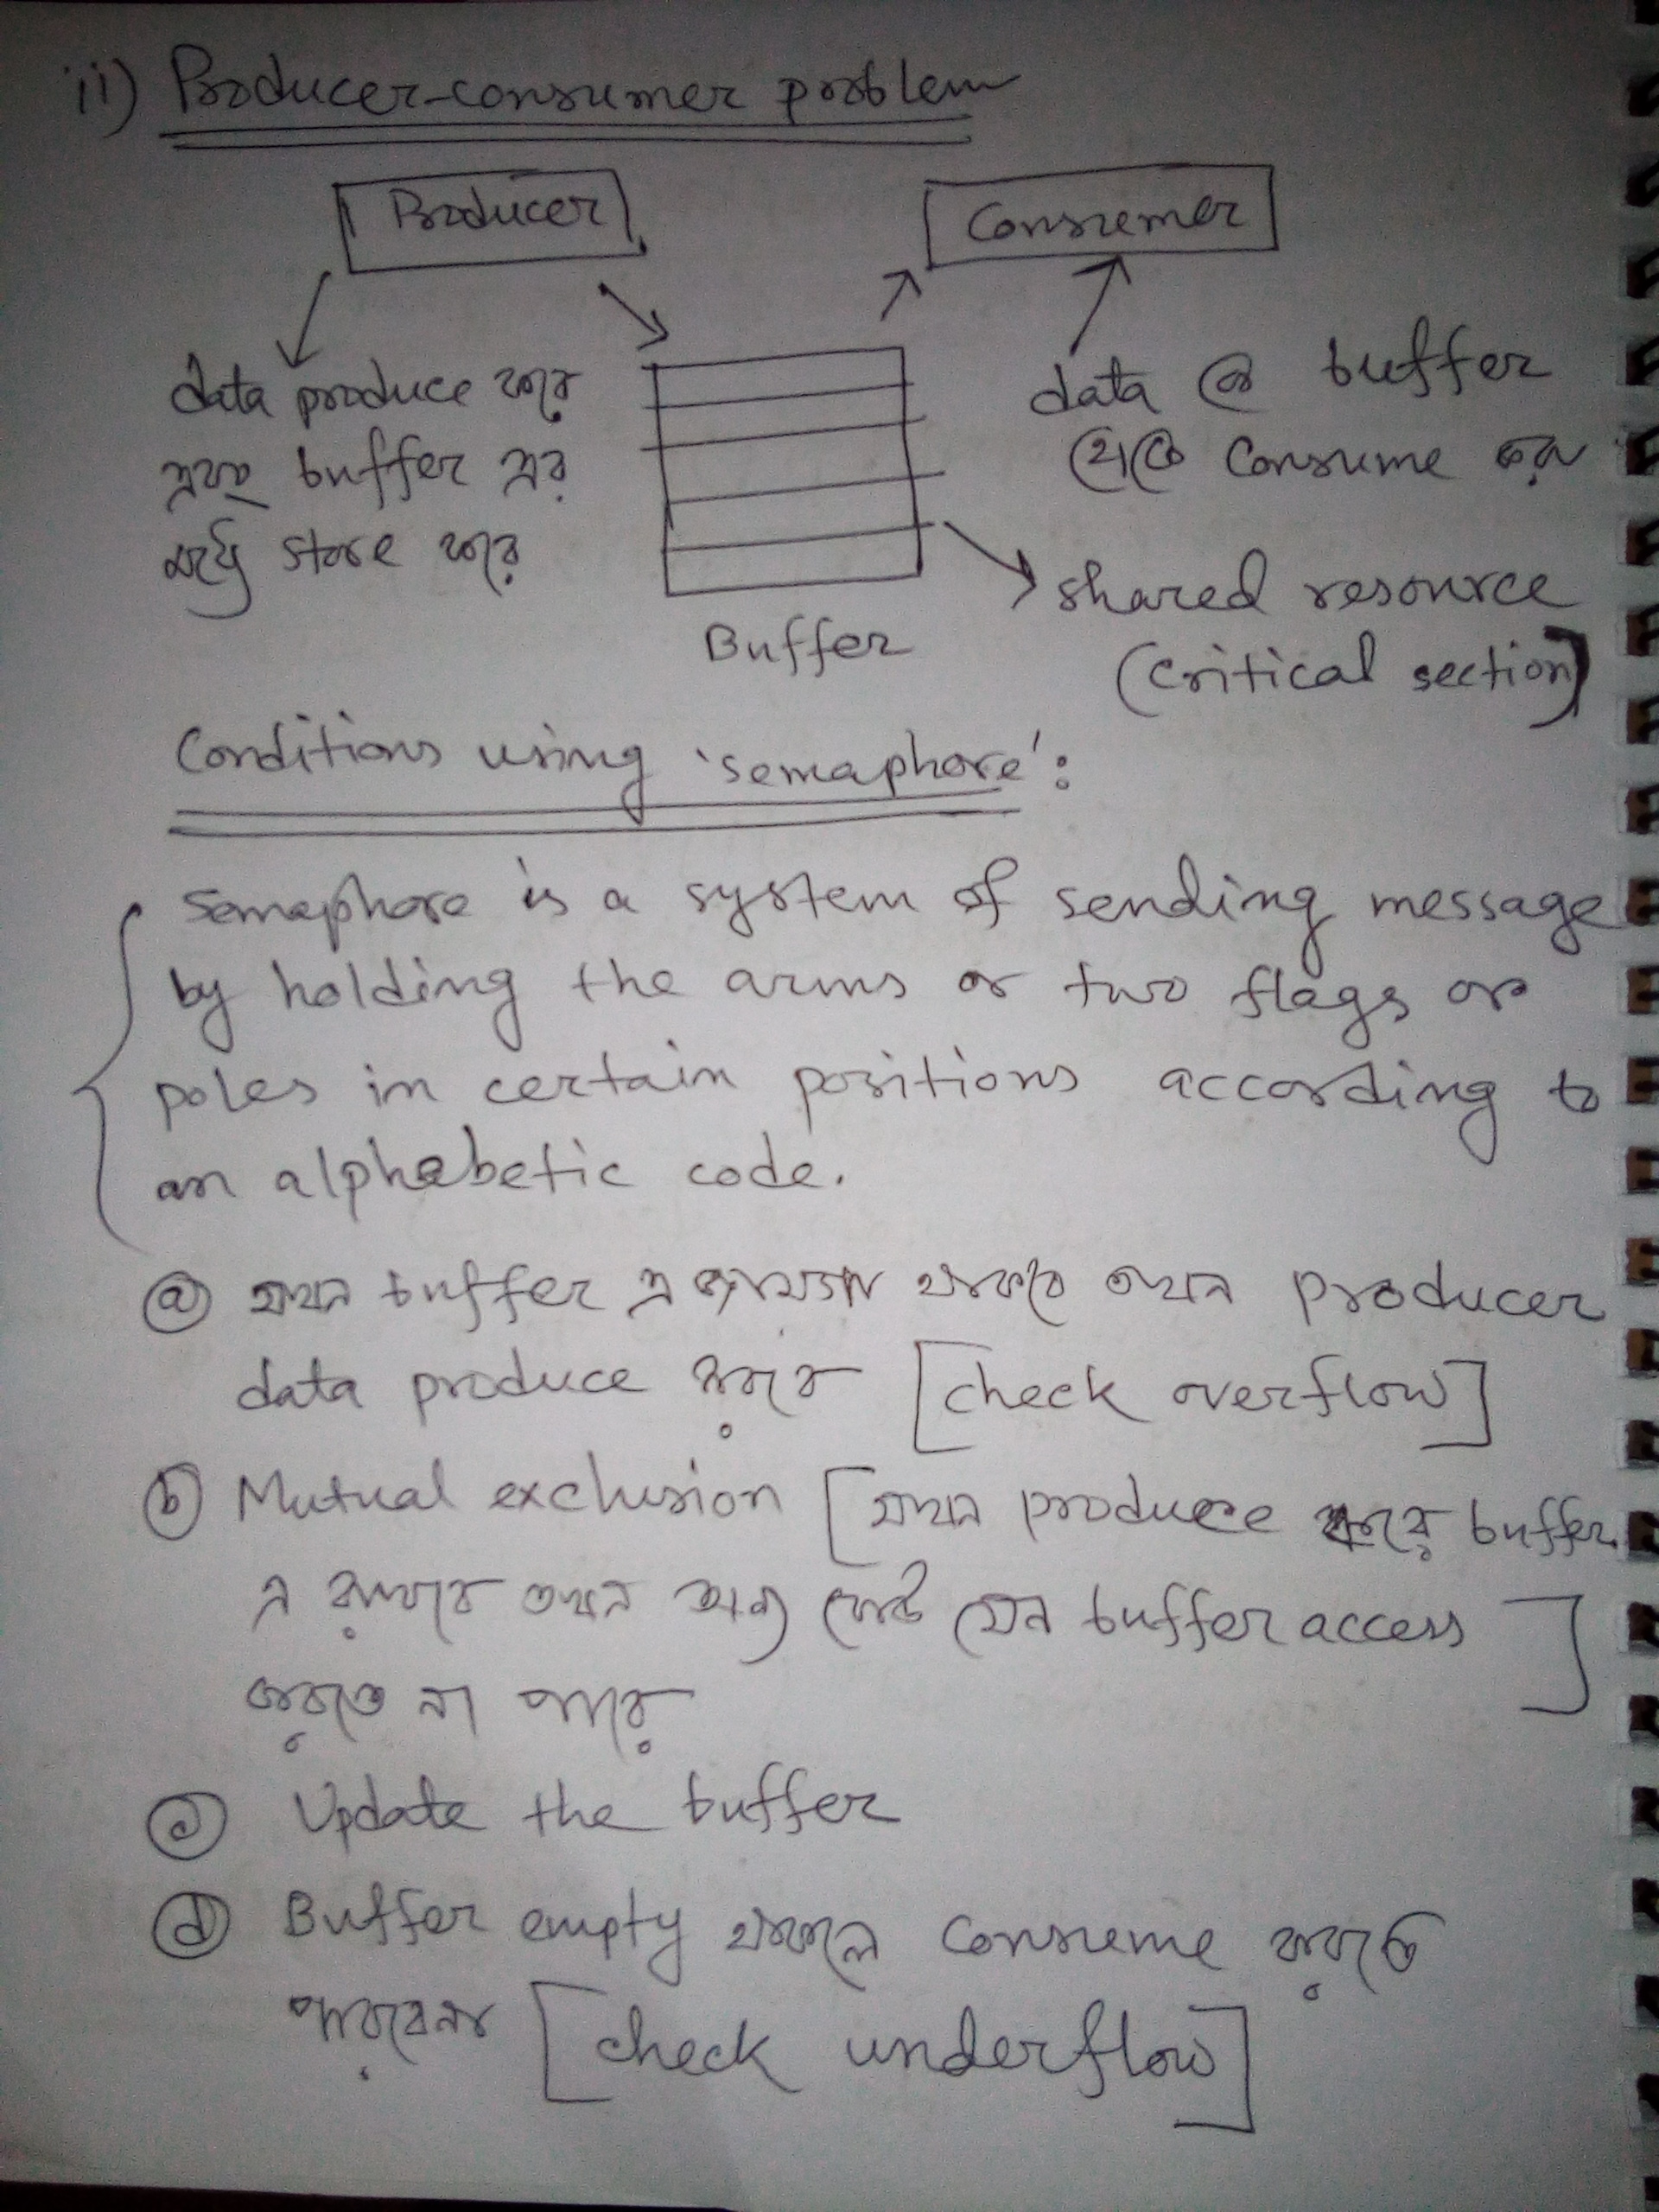 ii) Producer-consumer problem
Producer
Consumer
data produce করে
এবং buffer এর
মধ্যে store করে
data কে buffer
থেকে consume করে
shared resource
(critical section)
Buffer
Conditions using 'semaphore':
Semaphore is a system of sending message
by holding the arms or two flags or
poles in certain positions according to
an alphabetic code.
(a) যখন buffer এ থাকবে তখন producer
data produce করবে [check overflow]
(b) Mutual exclusion [যখন produce করে buffer
এ রাখবে তখন অন্য কেউ যেন buffer access
করতে না পারে]
(c) Update the buffer
(d) Buffer empty থাকলে consume করতে
পারবেনা [check underflow]